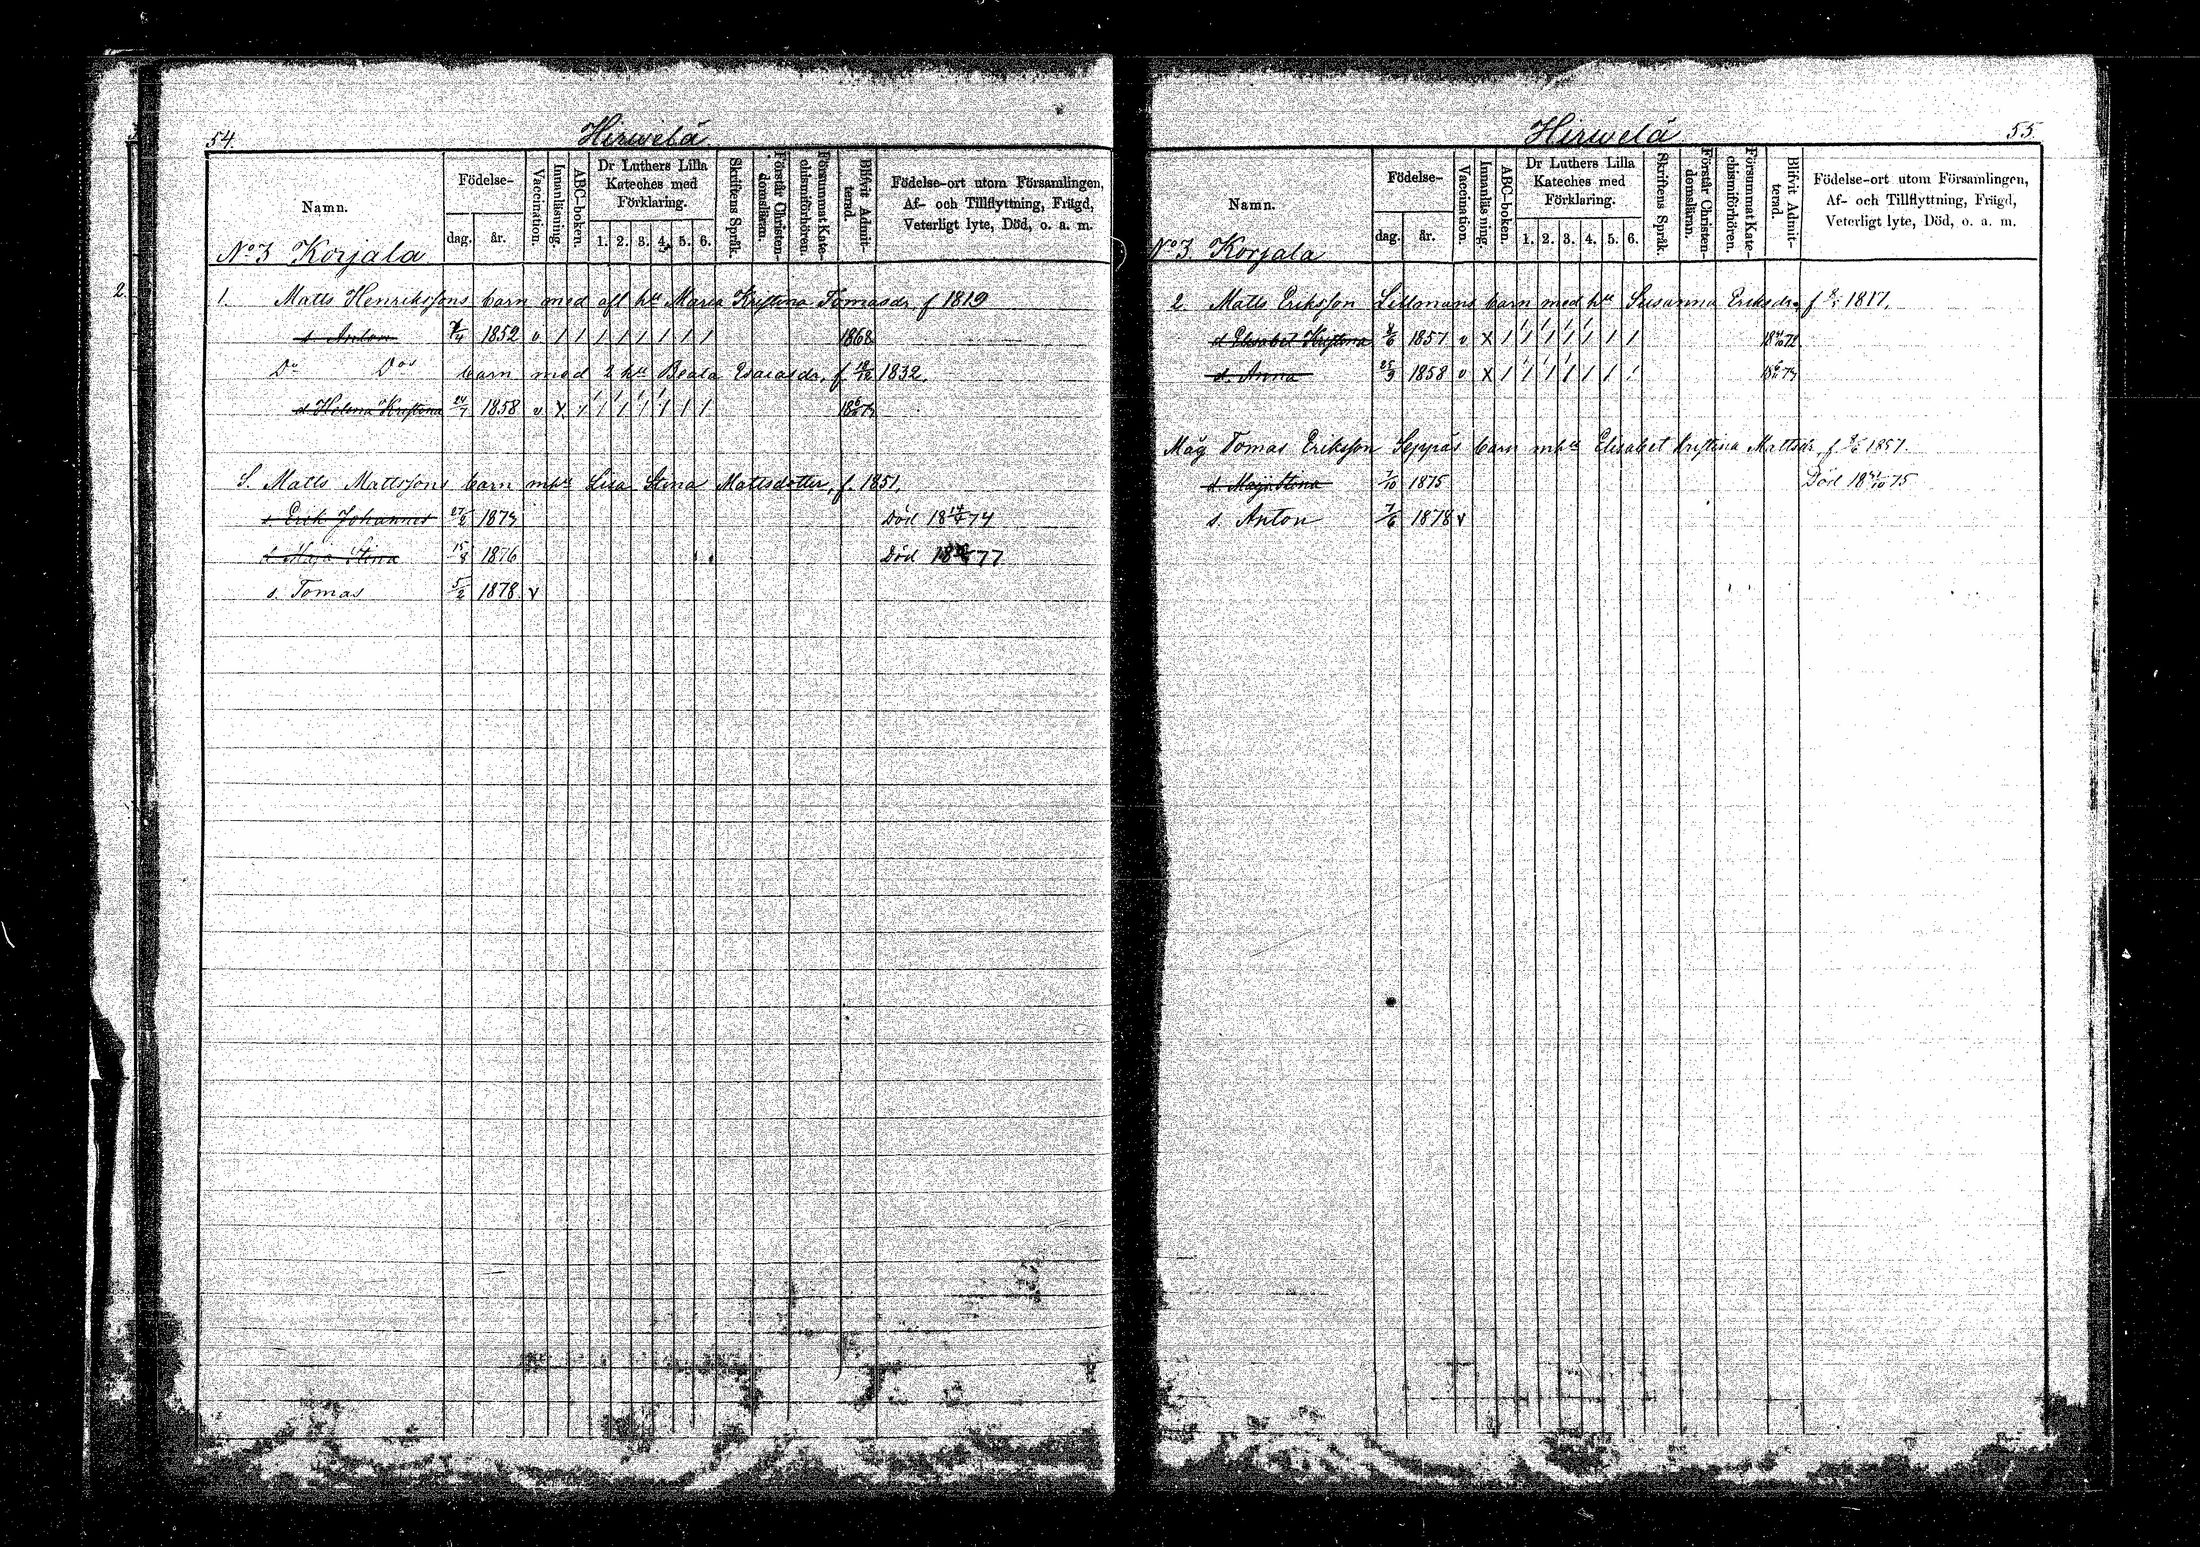 54.
Hirwelä
Namn.
Födelse-
dag. år.
Vaccination.
Innanläsning.
ABC-boken.
Dr Luthers Lilla
Kateches med
Förklaring.
1. 2. 3. 4. 5. 6.
Skriftens Språk.
Förstår Christen-
domsläran.
Försummat Kate-
chismiförhören.
Blifvit Admit-
terad.
Födelse-ort utom Församlingen,
Af- och Tillflyttning, Frägd,
Veterligt lyte, Död, o. a. m.
No 3 Korjala
2.
1. Matts Henrikssons barn med afl hu Maria Kristina Tomasdr, f 1819
s Anton 1852 v / / / / / / / / 1868
Do Dos barn med 2 hu Beata Esaiasdr, f. 1832.
d Helena Kristina 24/7 1858 v X / / / / / / /
S. Matts Mattssons barn mhu Lisa Stina Mattsdotter, f. 1851.
s Erik Johannes 27/2 1873 Död 74
d Maja Stina 15/8 1876 Död 77
s. Tomas 5/2 1878. v
55
Hirwelä
Namn.
Födelse-
dag. år.
Vaccination.
Innanläsning.
ABC-boken.
Dr Luthers Lilla
Kateches med
Förklaring.
1. 2. 3. 4. 5. 6.
Skriftens Språk.
Förstår Christen-
domsläran.
Försummat Kate-
chismiförhören.
Blifvit Admit-
terad.
Födelse-ort utom Församlingen,
Af- och Tillflyttning, Frägd,
Veterligt lyte, Död, o. a. m.
No 3. Korjala
2 Matts Eriksson Lillmans barn med hu Susanna Eriksdr, f 1817.
d Elisabet Kristina 8/6 1857 v X / / / / / / /
d. Anna 25/9 1858 v X / / / / / / /
Måg Tomas Eriksson Seppäs barn mhu Elisabet Kristina Mattsdr, f 8/6 1857.
d. Maja Stina 7/10 1875 Död 75
s. Anton 7/6 1878 v